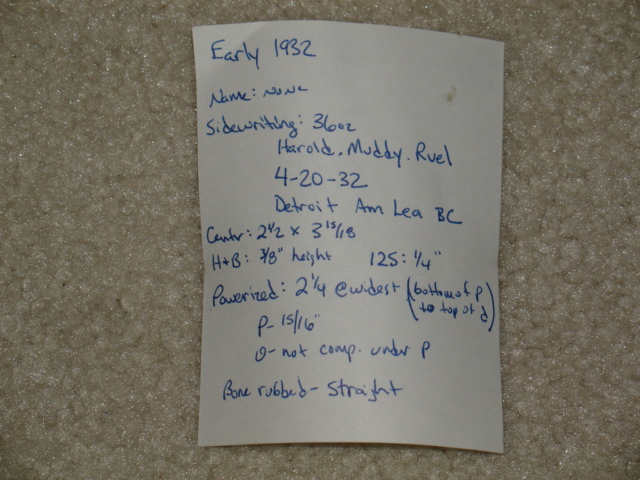 Early 1932
Name: none
Sidewriting: 36oz
Harold. Muddy. Ruel
4-20-32
Detroit Am Lea BC
Center: 2 1/2 x 3 15/18
H+B: 3/8" height 125: 1/4"
Powerized: 2 1/4 @ widest (bottom of p
to top of d)
P- 15/16"
O- not comp. under P
Bone rubbed- Straight